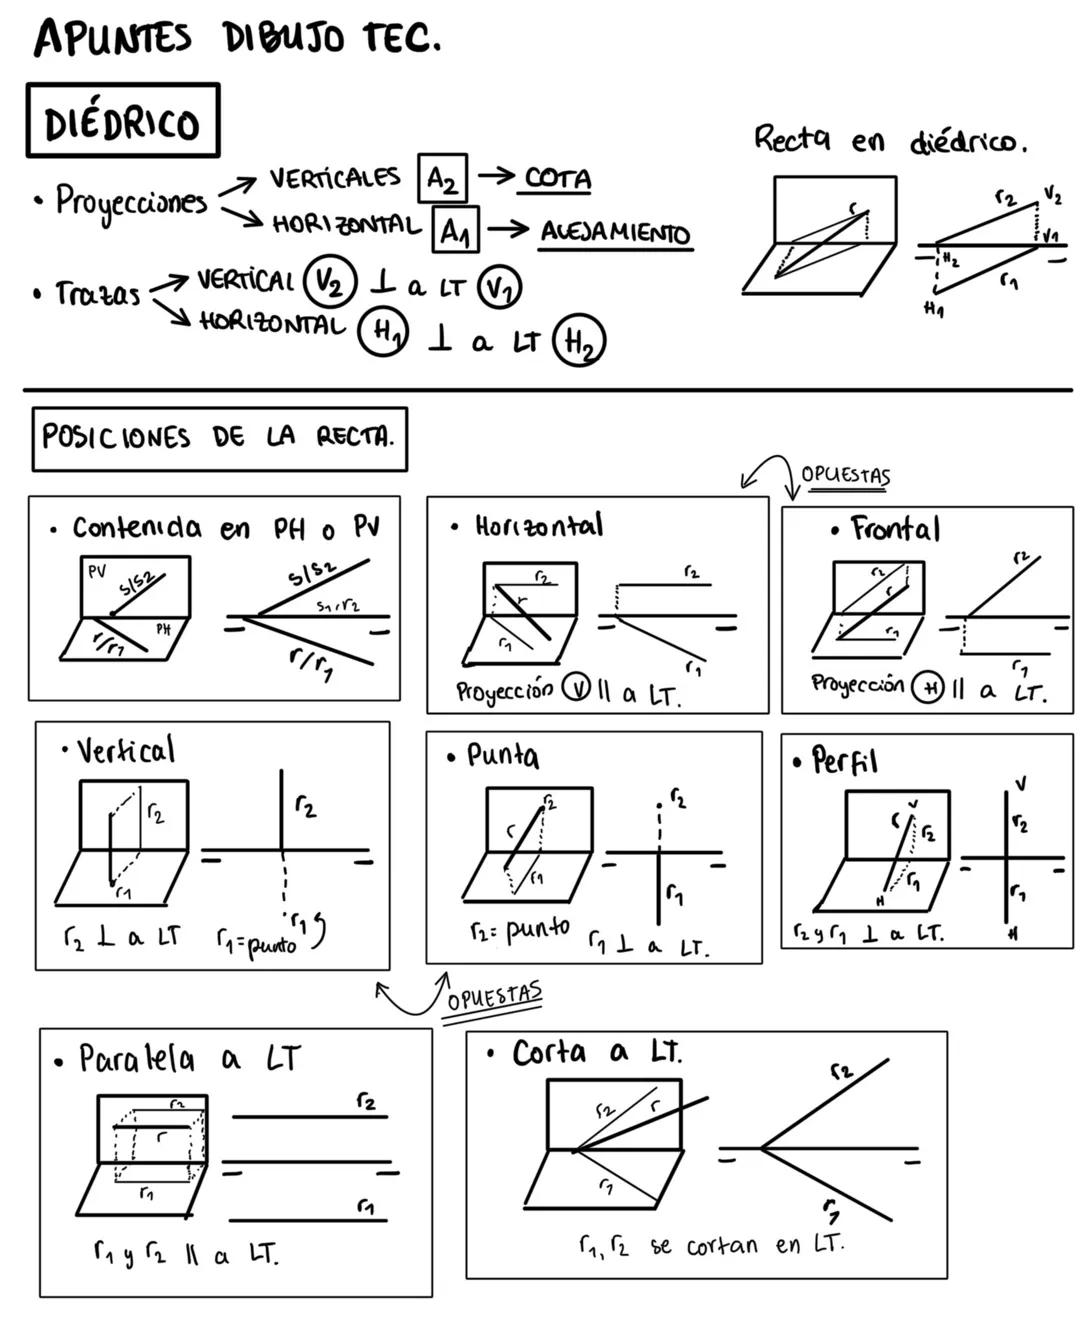 APUNTES DIBUJO TEC.
DIÉDRICO
Recta en diédrico.
• Proyecciones
VERTICALES A2 → COTA
HORIZONTAL A1 → ALEJAMIENTO
• Trazas
VERTICAL V2 ⊥ a LT V1
HORIZONTAL H1 ⊥ a LT H2
r
r2 V2
V1
H2
r1
H1
POSICIONES DE LA RECTA.
OPUESTAS
• Contenida en PH o PV
PV
s/s2
PH
r/r1
s/s2
s1,r2
r/r1
• Horizontal
r2
r
r1
r2
r1
Proyección V || a LT.
• Frontal
r2
r
r1
r2
r1
Proyección H || a LT.
• Vertical
r2
r1
r2
r1
r2 ⊥ a LT
r1=punto
• Punta
r2
r
r1
r2
r1
r2= punto
r1 ⊥ a LT.
• Perfil
V
r
r2
r1
H
V
r2
r1
H
r2 y r1 ⊥ a LT.
OPUESTAS
• Paralela a LT
r2
r
r1
r2
r1
r1 y r2 || a LT.
• Corta a LT.
r2
r
r1
r2
r1
r1, r2 se cortan en LT.